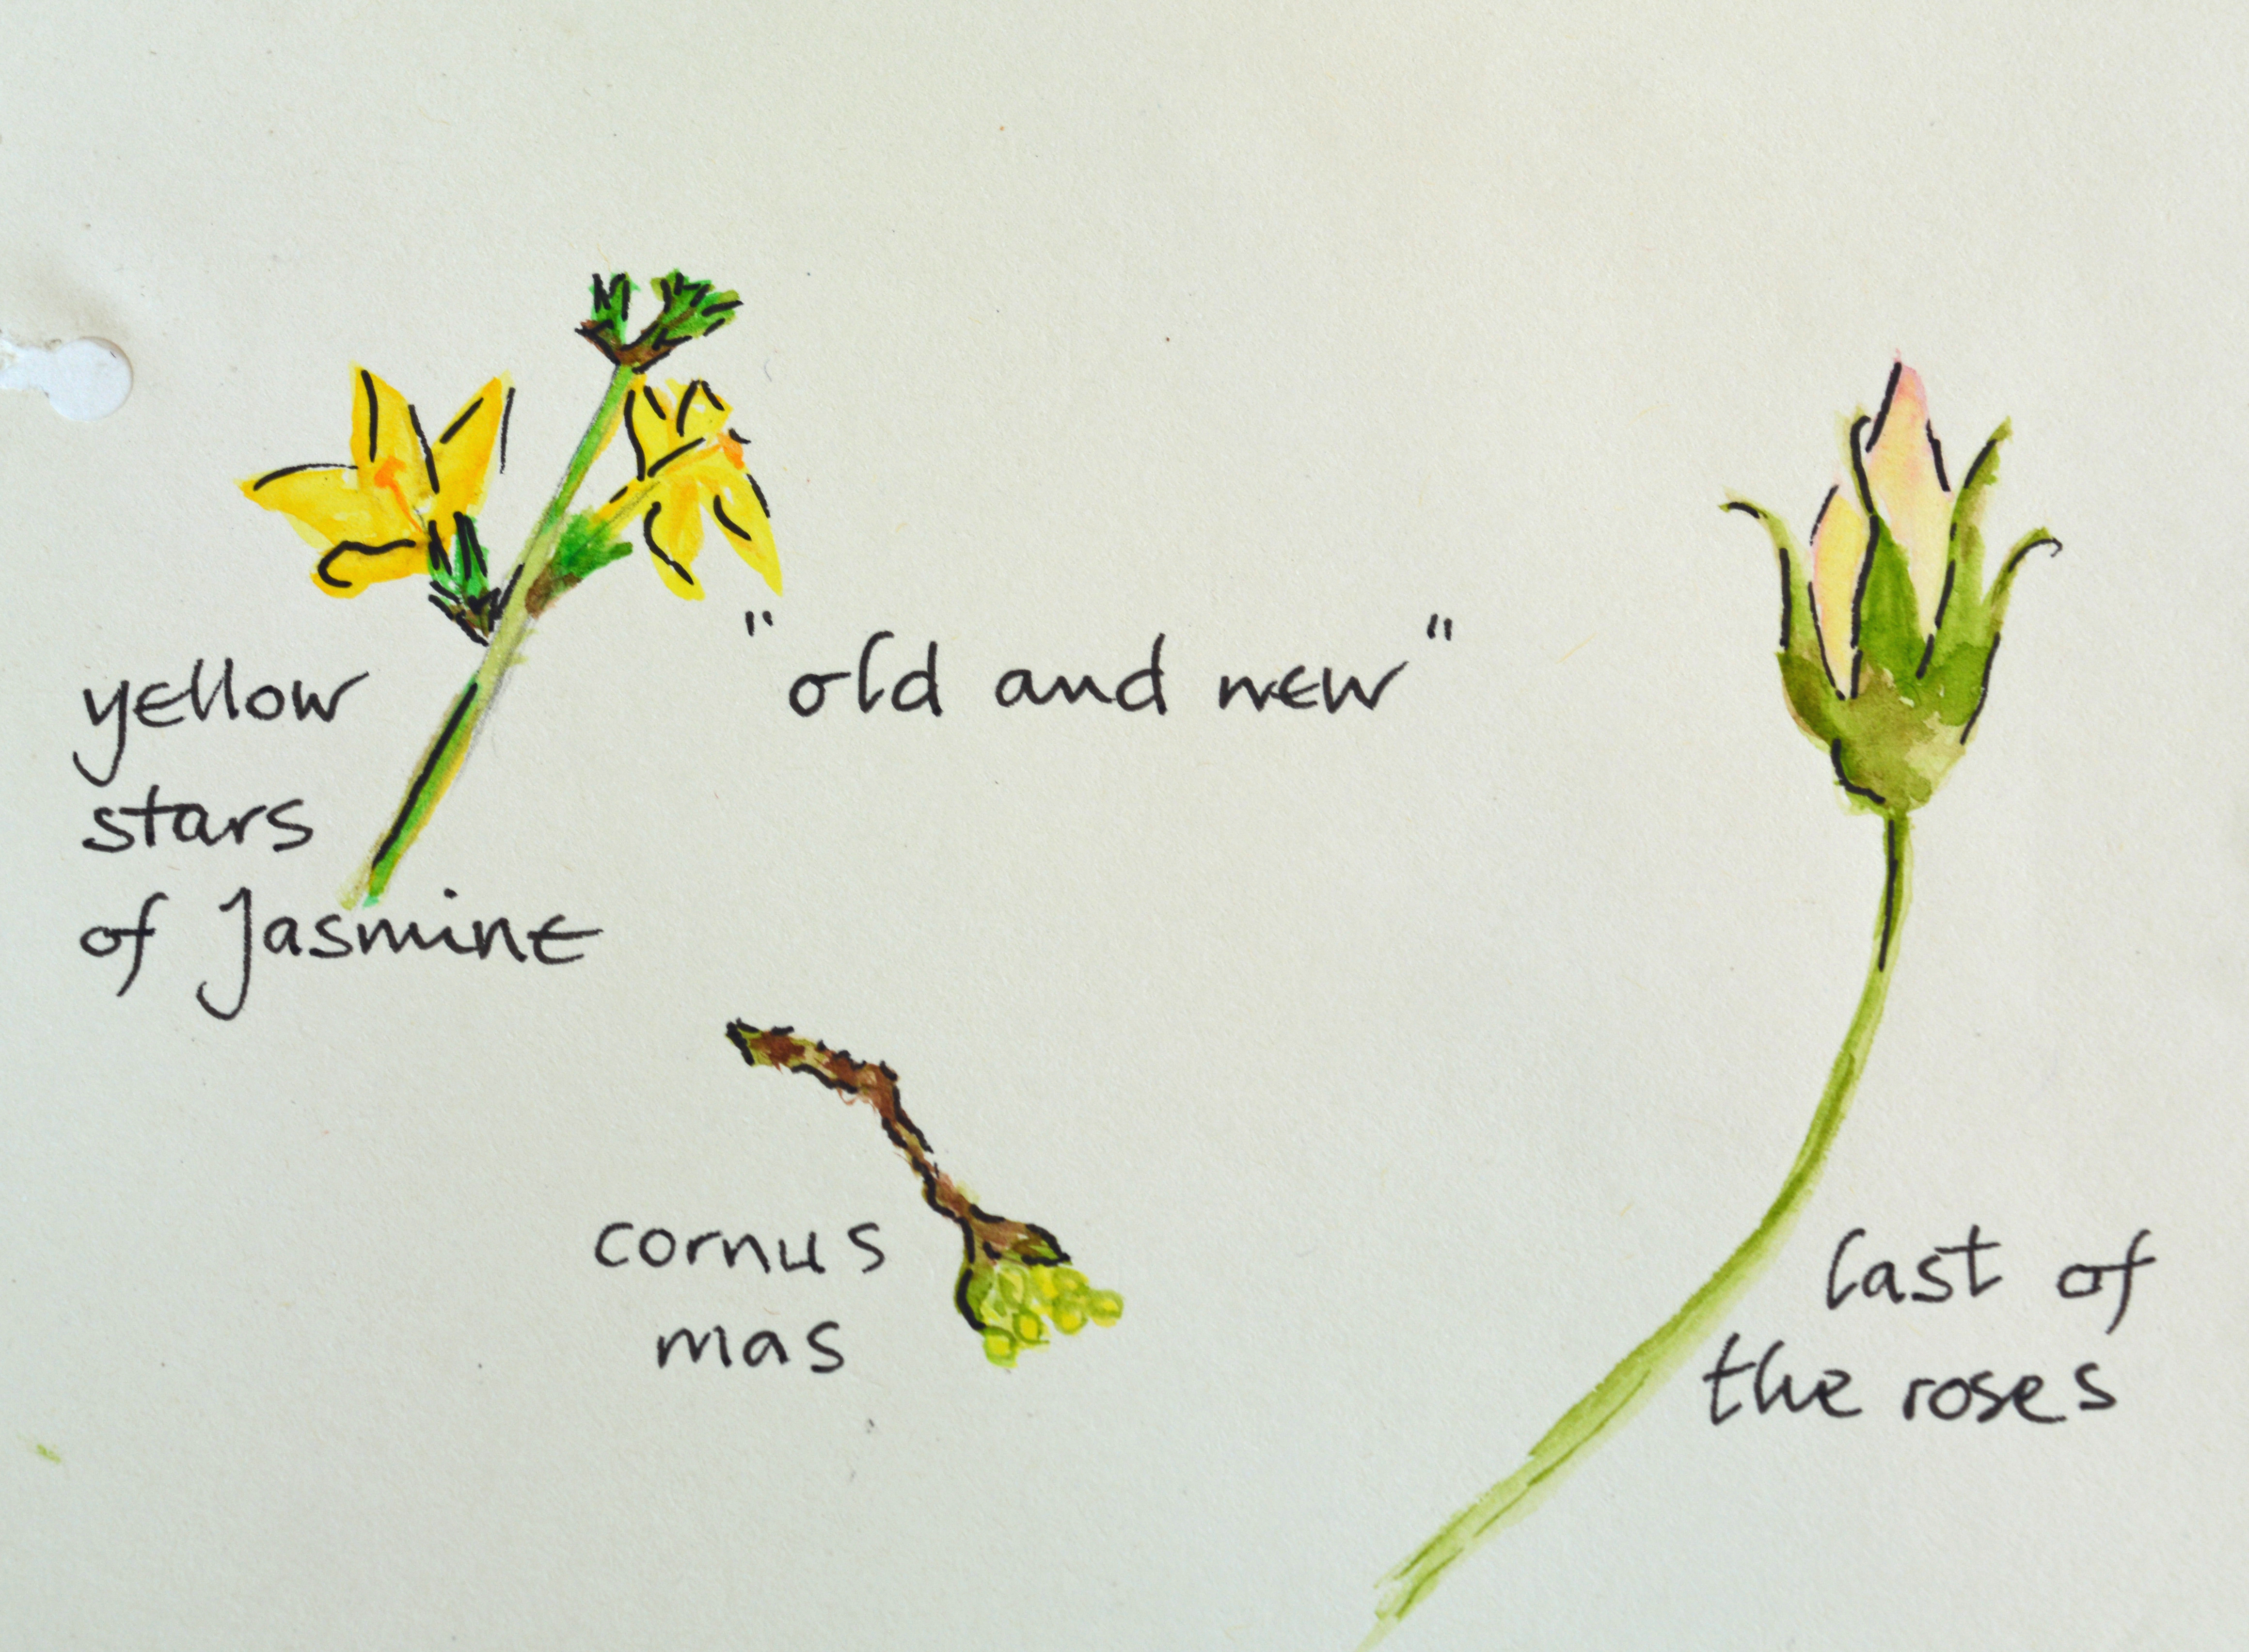 "old and new"
yellow
stars
of Jasmine
cornus
mas
last of
the roses